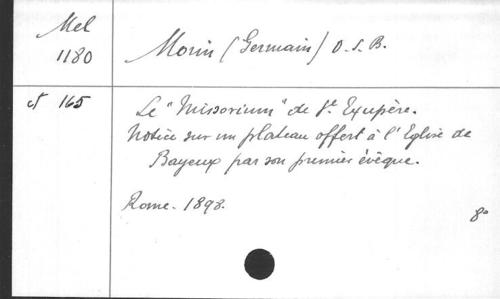 Mel
1180
Morin (Germain) O.S.B.
cf 165
Le "Missorium" de St Exupère.
Notice sur un plateau offert à l'Eglise de
Bayeux par son premier évêque.
Rome. 1898.
8°